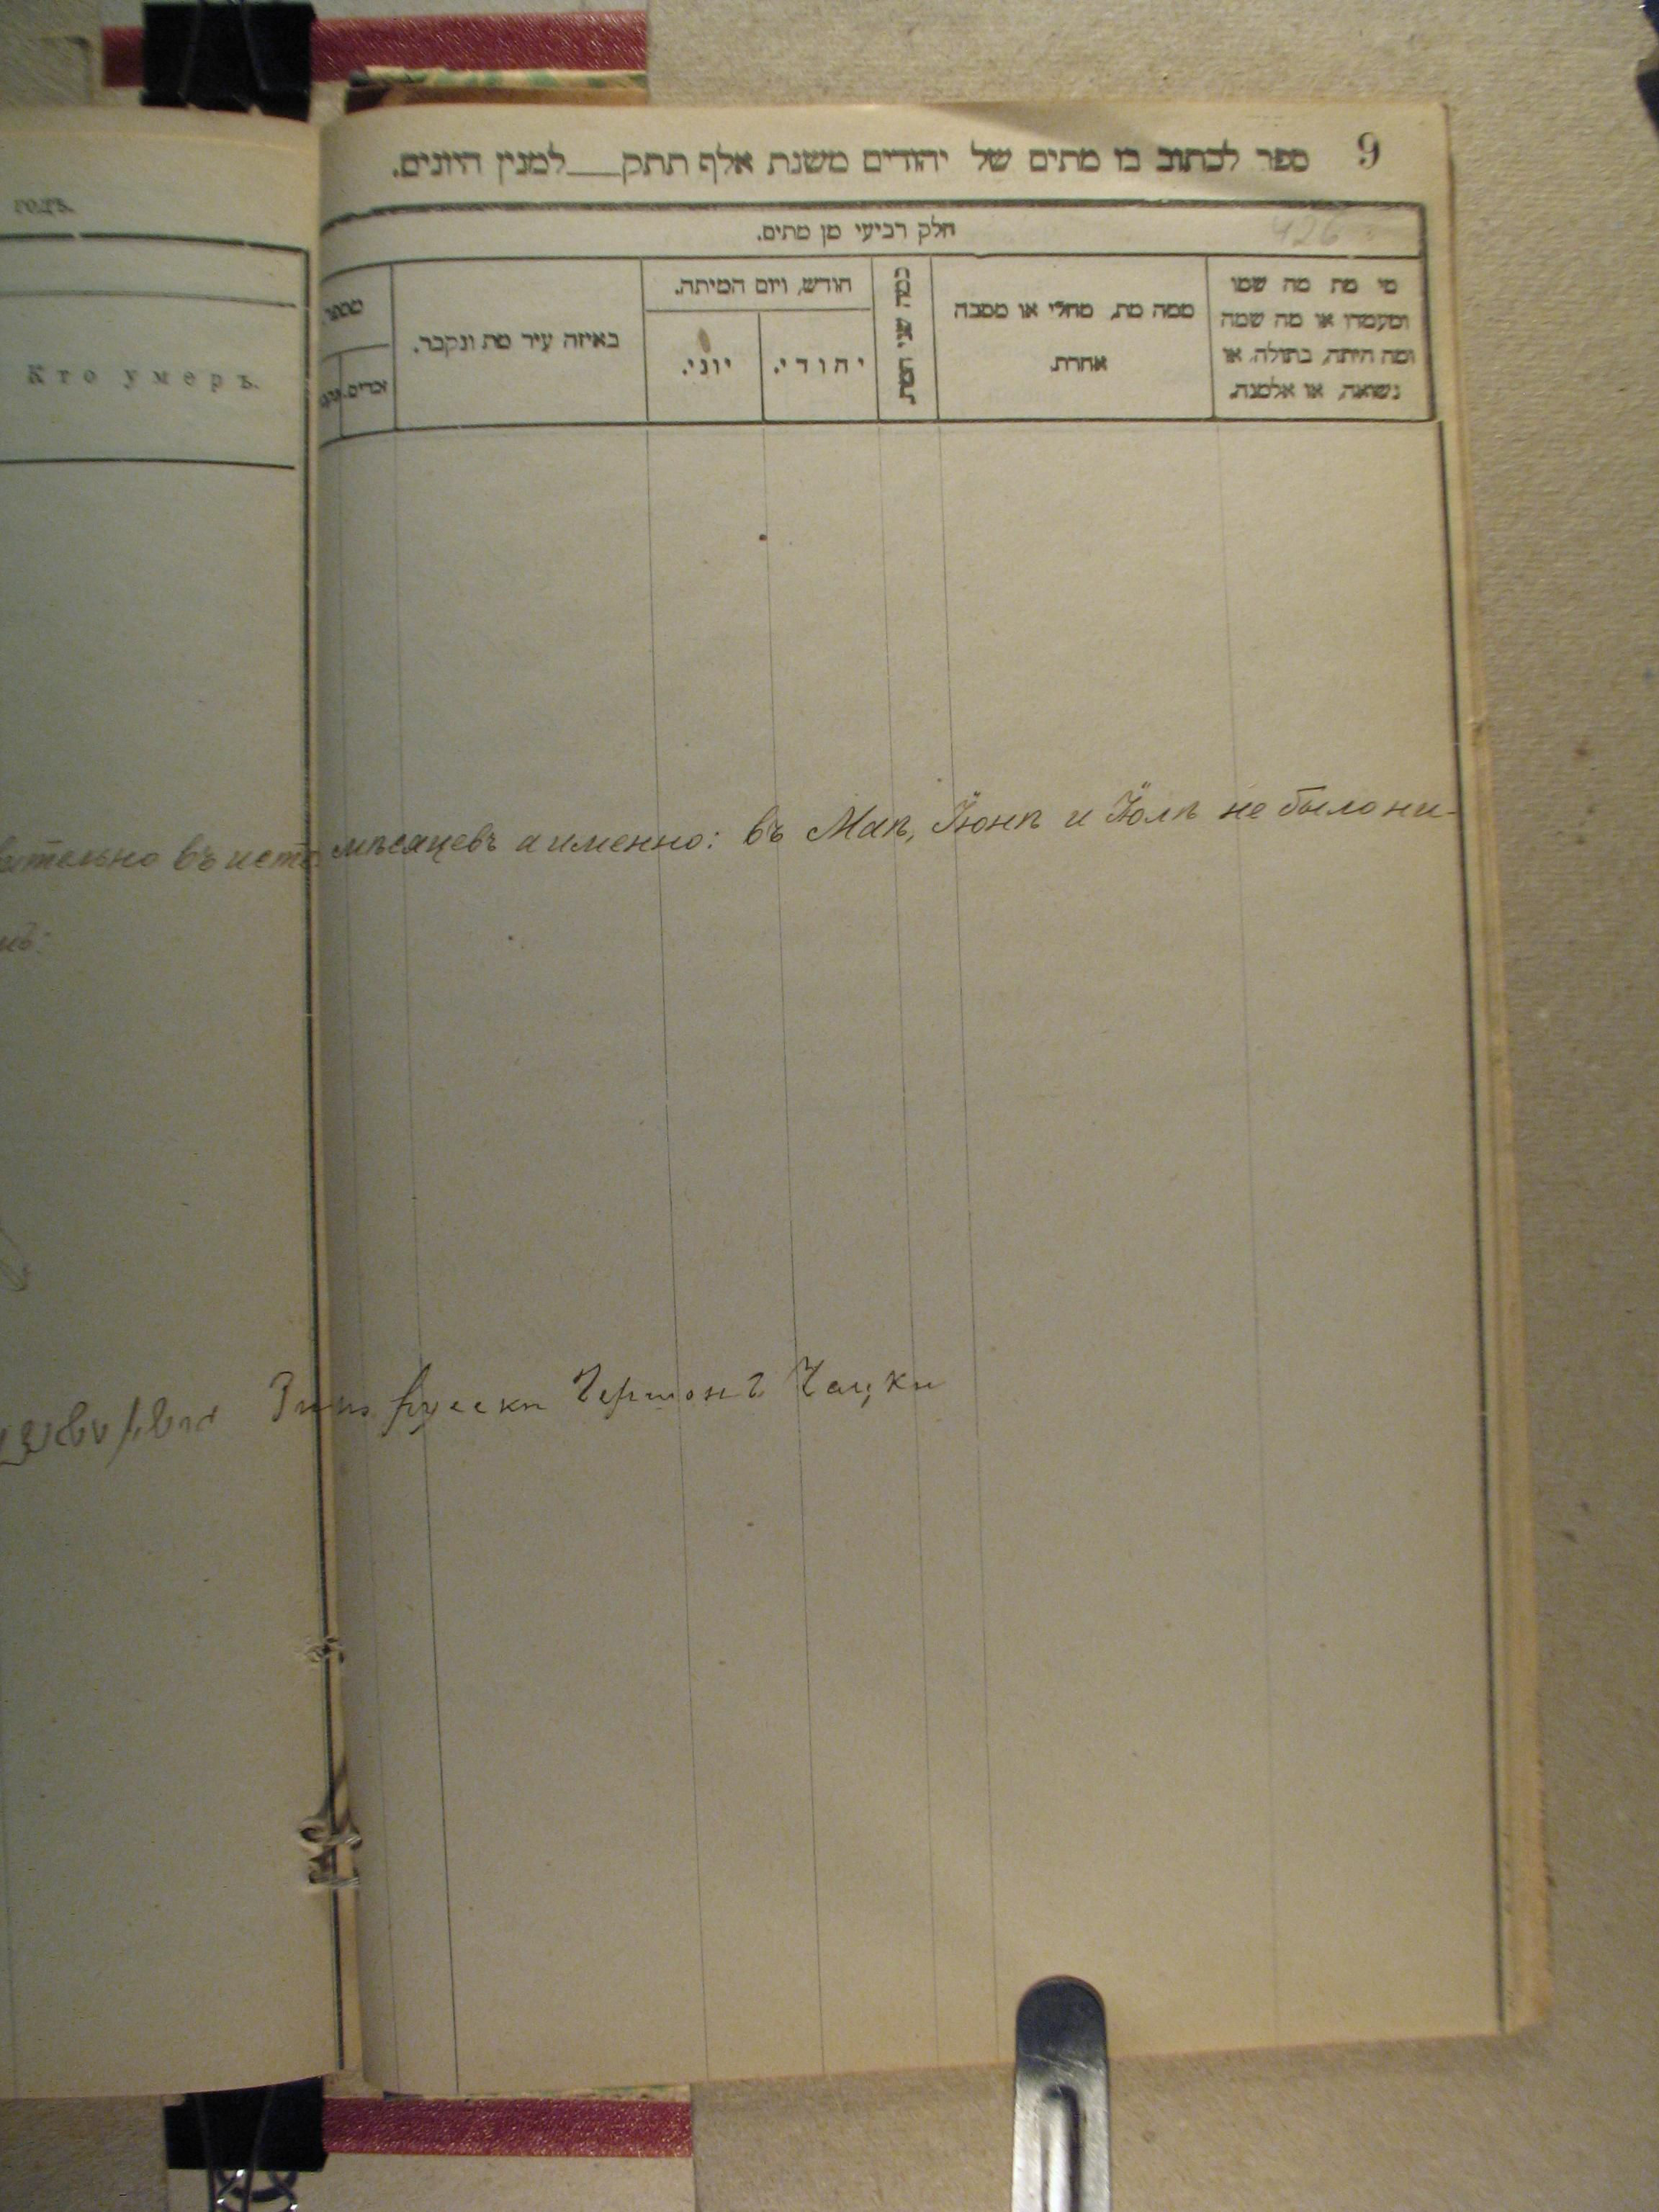 9
ספר לכתוב בו מתים של יהודים משנת אלף תתק__למנין היונים.
426
חלק רביעי מן מתים.
מי מת מה שמו
ומעמדו או מה שמה
ומה היתה, בתולה, או
נשואה, או אלמנה.
ממה מת, מחלי או מסבה
אחרת.
כמה שני המת
חודש, ויום המיתה.
יהודי.
יוני.
באיזה עיר מת ונקבר.
מספר
זכרים.
годъ.
Кто умеръ.
мѣсяцевъ а именно: въ Маѣ, Іюнѣ и Іюлѣ не было ни-
Чацки